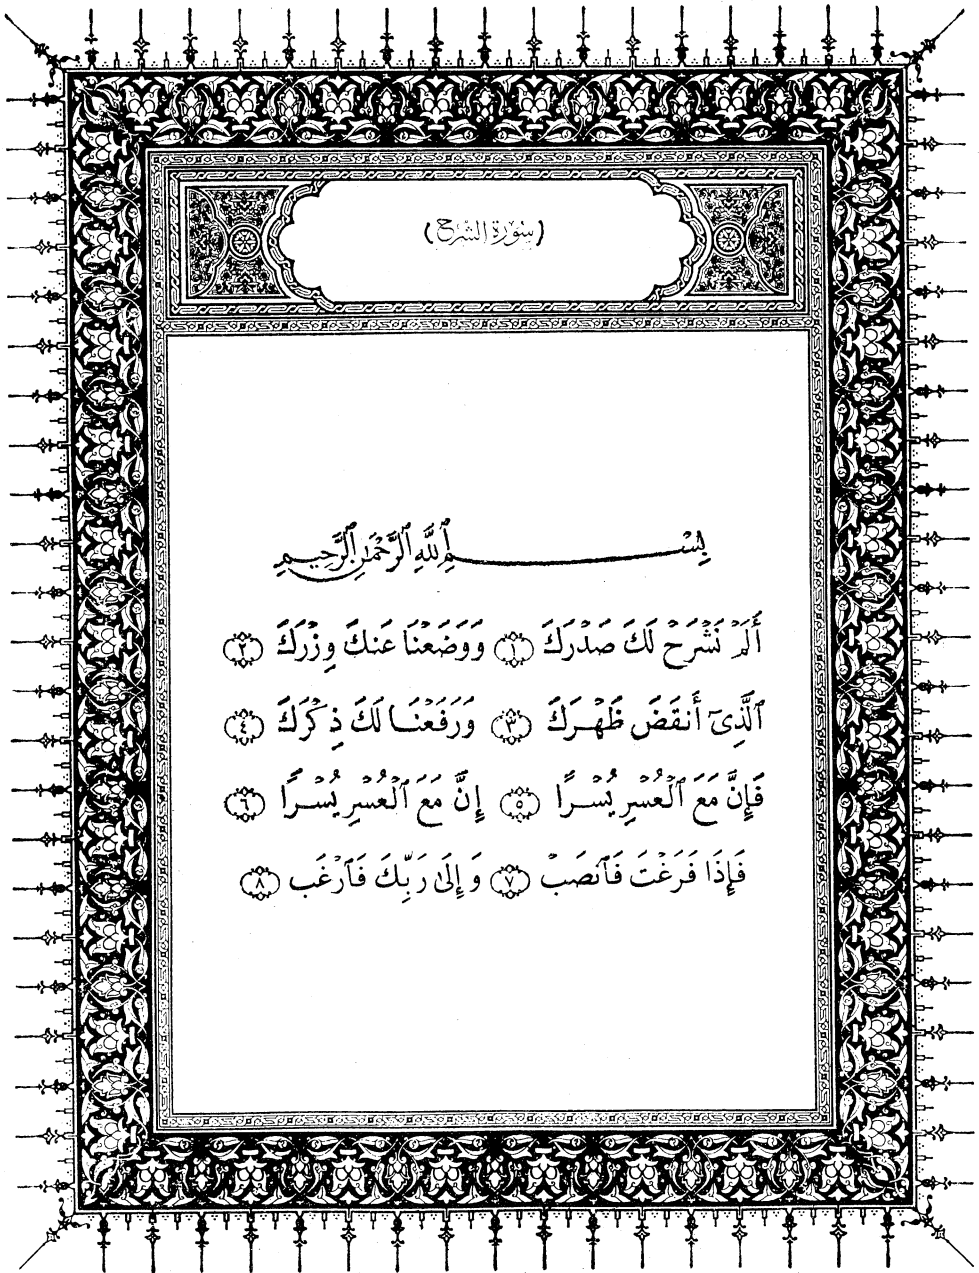 (سورة الشرح)
بِسْمِ ٱللَّهِ ٱلرَّحْمَٰنِ ٱلرَّحِيمِ
أَلَمْ نَشْرَحْ لَكَ صَدْرَكَ ١ وَوَضَعْنَا عَنكَ وِزْرَكَ ٢
ٱلَّذِىٓ أَنقَضَ ظَهْرَكَ ٣ وَرَفَعْنَا لَكَ ذِكْرَكَ ٤
فَإِنَّ مَعَ ٱلْعُسْرِ يُسْرًا ٥ إِنَّ مَعَ ٱلْعُسْرِ يُسْرًا ٦
فَإِذَا فَرَغْتَ فَٱنصَبْ ٧ وَإِلَىٰ رَبِّكَ فَٱرْغَب ٨